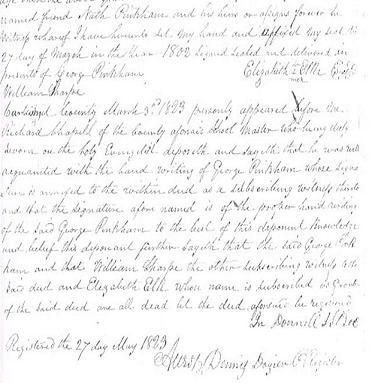 named friend Nath Pinkham and his heirs or assigns forever In
witness whereof I have hereunto set my hand and affixed my seal this
27 day of March in the Year 1802 signed sealed and delivered in
presents of Georg Pinkham Elizabeth Ellis
William Tharpe
Carteret County March 3rd 1823 personly appeared before me
Richard Chapell of the County aforsaid School Master who being duly
sworn on the holy Evinglist deposeth and sayeth that he was well
acquainted with the hand writing of George Pinkham whose signa
ture is annexed to the within deed as a subscribing witness thereto
and that the signature afore named is of the proper hand writing
of the said George Pinkham to the best of this deponent knowledge
and belief this deponant further sayeth that the said George Pink
ham and that William Tharpe the other subscribing witness to the
said deed and Elizabeth Ellis whose name is subscribed as
of the said deed are all dead let the deed aforesaid be registered
Jn Donnell
Registered the 27 day May 1823
Dozier Register